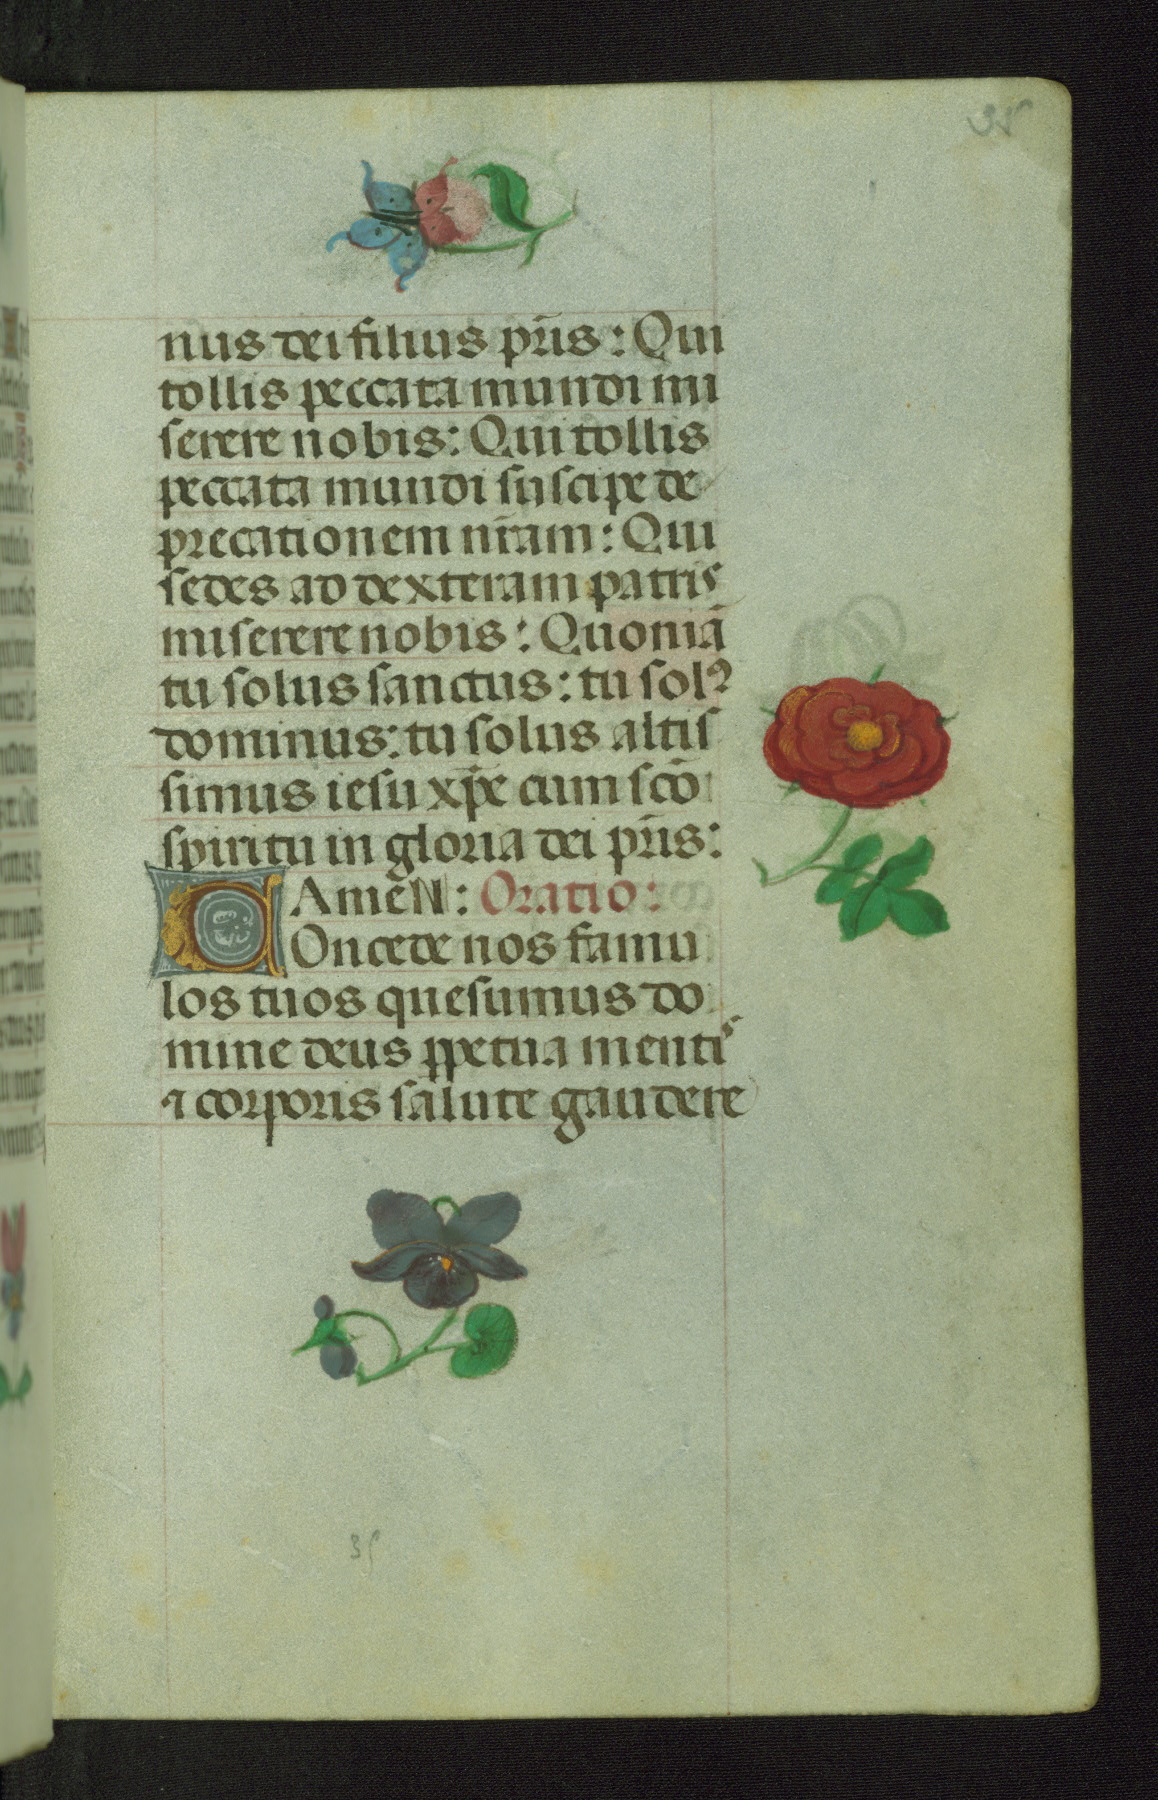 35
nus dei filius pr̄is : Qui
tollis peccata mundi mi
serere nobis : Qui tollis
peccata mundi suscipe de
precationem nr̄am : Qui
sedes ad dexteram patris
miserere nobis : Quoniā
tu solus sanctus : tu solꝰ
dominus : tu solus altis
simus iesu xp̄e cum scō
spiritu in gloria dei pr̄is :
AmēN : Oratio :
COncede nos famu
los tuos quesumus do
mine deus ꝑpetua mentis
⁊ corporis salute gaudere
35